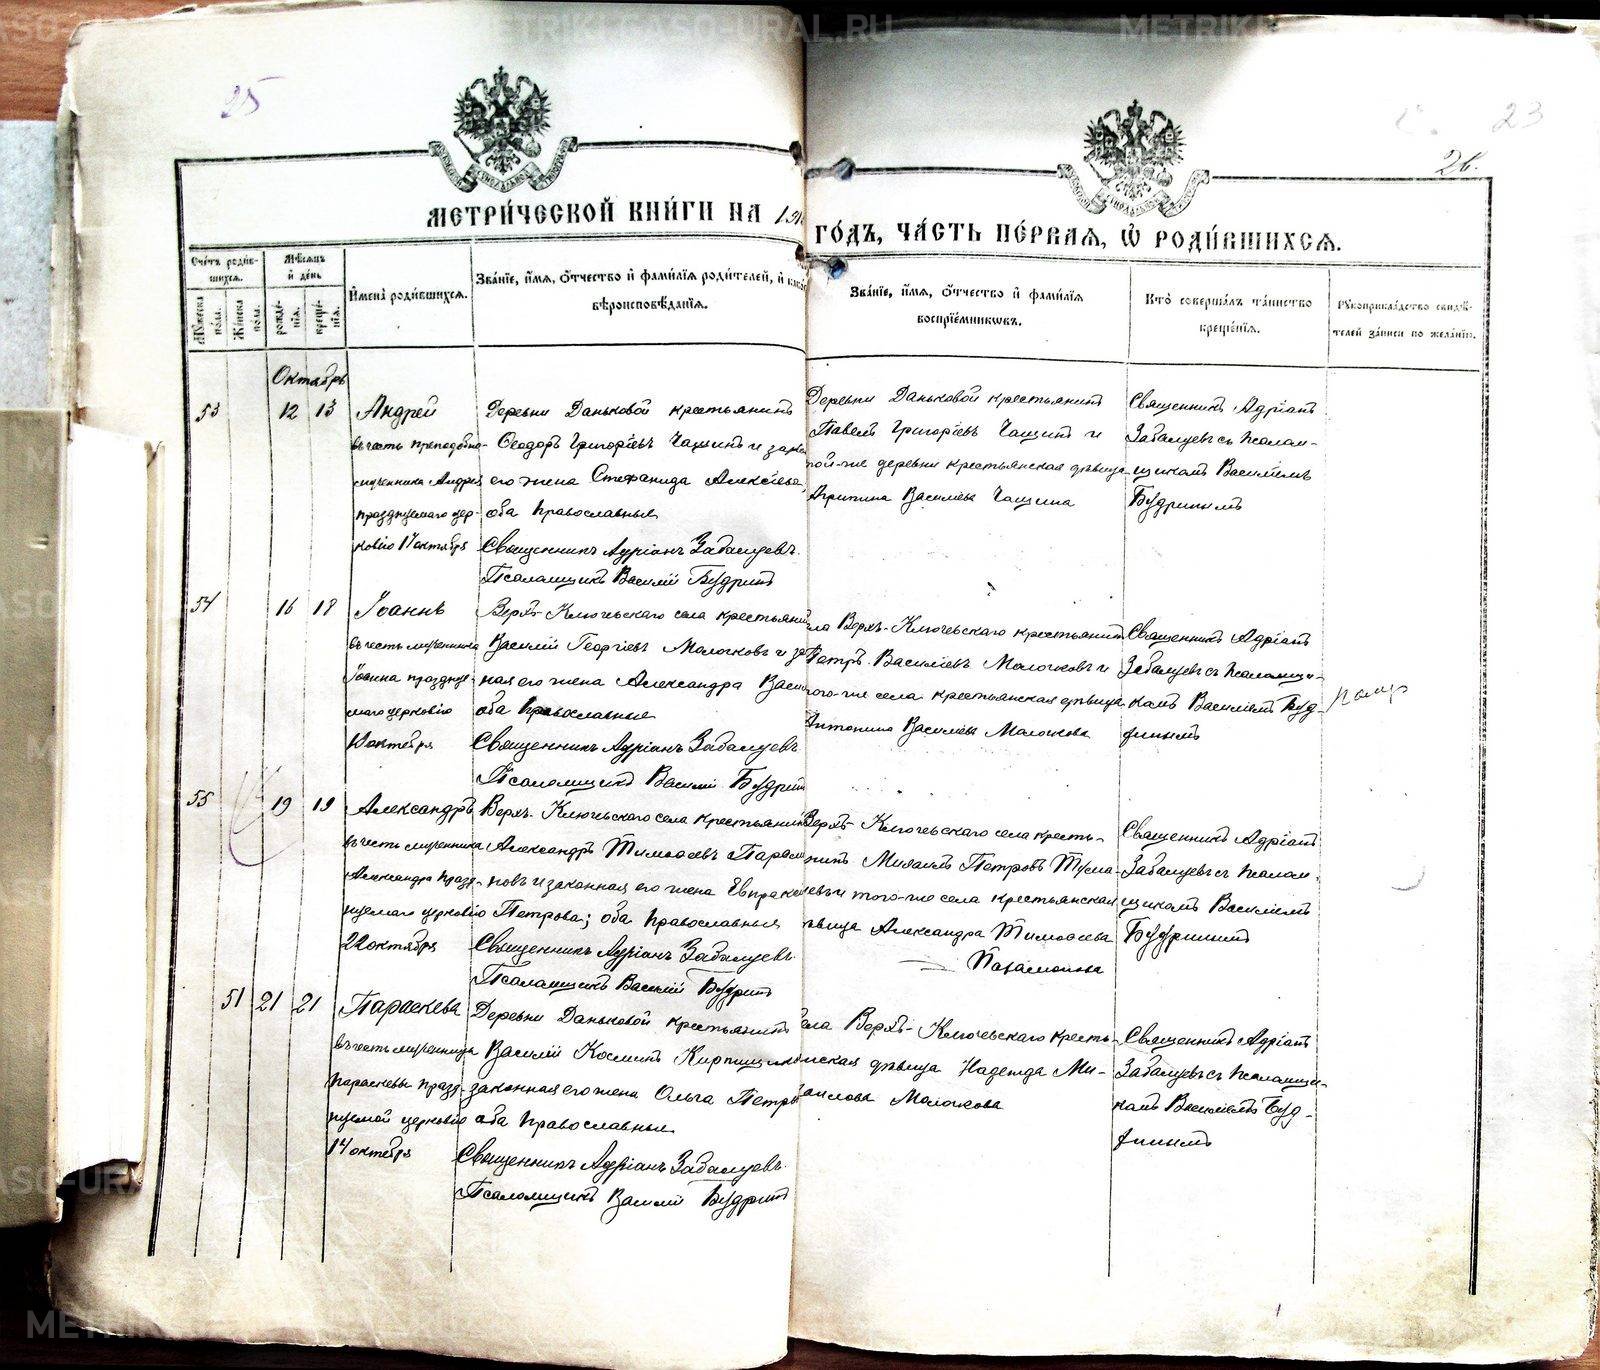 METRIKI.GASO-URAL.RU
METRIKI.GASO-URAL.RU
25
23
26.
МЕТРИ́ЧЕСКОЙ КНИ́ГИ НА
ГО́ДЪ, ЧА́СТЬ ПЕ́РВАЯ, Ѽ РОДИ́ВШИХСЯ.
Сче́тъ роди́в-
шихся.
Му́жеска по́ла.
Же́нска пола.
Мѣ́сяцъ и де́нь
рожде́-
нія.
креще́-
нія.
И҆мена̀ роди́вшихся.
Зва́ніе, и҆́мя, ѻ҆́тчество и҆ фами́лія роди́телей, и҆
вѣроисповѣ́данія.
Зва́ніе, и҆́мя, ѻ҆́тчество и҆ фами́лія
воспріе́мниковъ.
Кто̀ соверша́лъ та́инство
креще́нія.
Рукоприкла́дство свидѣ́-
телей за́писи по жела́нію.
Октябрь
53
12 13
Андрей
въ честь преподобно-
мученика Андрея
празднуемаго цер-
ковію 17 октября
Деревни Даньковой крестьянинъ
Ѳеодоръ Григоріевъ Чащинъ и закон
его жена Стефанида Алексіева,
оба православные
Священникъ Адріанъ Забалуевъ.
Псаломщикъ Василій Будринъ
Деревни Даньковой крестьянинъ
Павелъ Григоріевъ Чащинъ и
той-же деревни крестьянская дѣвица
Агрипина Васильева Чащина
Священникъ Адріанъ
Забалуевъ съ псалом-
щикомъ Василіемъ
Будринымъ
54
16 18
Іоаннъ
въ честь мученика
Іоанна праздну-
емаго церковію
октября
Верхъ-Ключевскаго села крестьянин
Василій Георгіевъ Молочковъ и за
ная его жена Александра Васи
оба православные
Священникъ Адріанъ Забалуевъ
Псаломщикъ Василій Будринъ
ла Верхъ-Ключевскаго крестьянинъ
Петръ Василіевъ Молочковъ и
того-же села крестьянская дѣвица
Антонина Васильева Молочкова
Священникъ Адріанъ
Забалуевъ съ псаломщи-
комъ Василіемъ Буд-
ринымъ
55
19 19
Александръ
въ честь мученика
Александра празд-
нуемаго церковію
22 октября
Верхъ-Ключевскаго села крестьянинъ
Александръ Тимоѳеевъ Парамо
новъ и законная его жена Евпракс
Петрова; оба православные
Священникъ Адріанъ Забалуевъ
Псаломщикъ Василій Будринъ
Верхъ-Ключевскаго села кресть-
нинъ Михаилъ Петровъ Тума-
евъ и того-же села крестьянская
дѣвица Александра Тимоѳеева
Парамонова
Священникъ Адріанъ
Забалуевъ съ псалом-
щикомъ Василіемъ
Будринымъ
51 21 21
Параскева
въ честь мученицы
Параскевы празд-
нуемой церковію
14 октября
Деревни Даньковой крестьянинъ
Василій Косминъ Кирпищиков
законная его жена Ольга Петро
оба православные
Священникъ Адріанъ Забалуевъ.
Псаломщикъ Василій Будринъ
села Верхъ-Ключевскаго кресть-
янская дѣвица Надежда Ми-
хаилова Молочкова
Священникъ Адріанъ
Забалуевъ съ псаломщи-
комъ Василіемъ Буд-
ринымъ
METRIKI.GASO-URAL.RU
METRIKI.GASO-URAL.RU